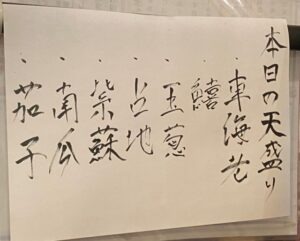 本日の天盛り
・車海老
・鱚
・玉葱
・占地
・紫蘇
・南瓜
・茄子